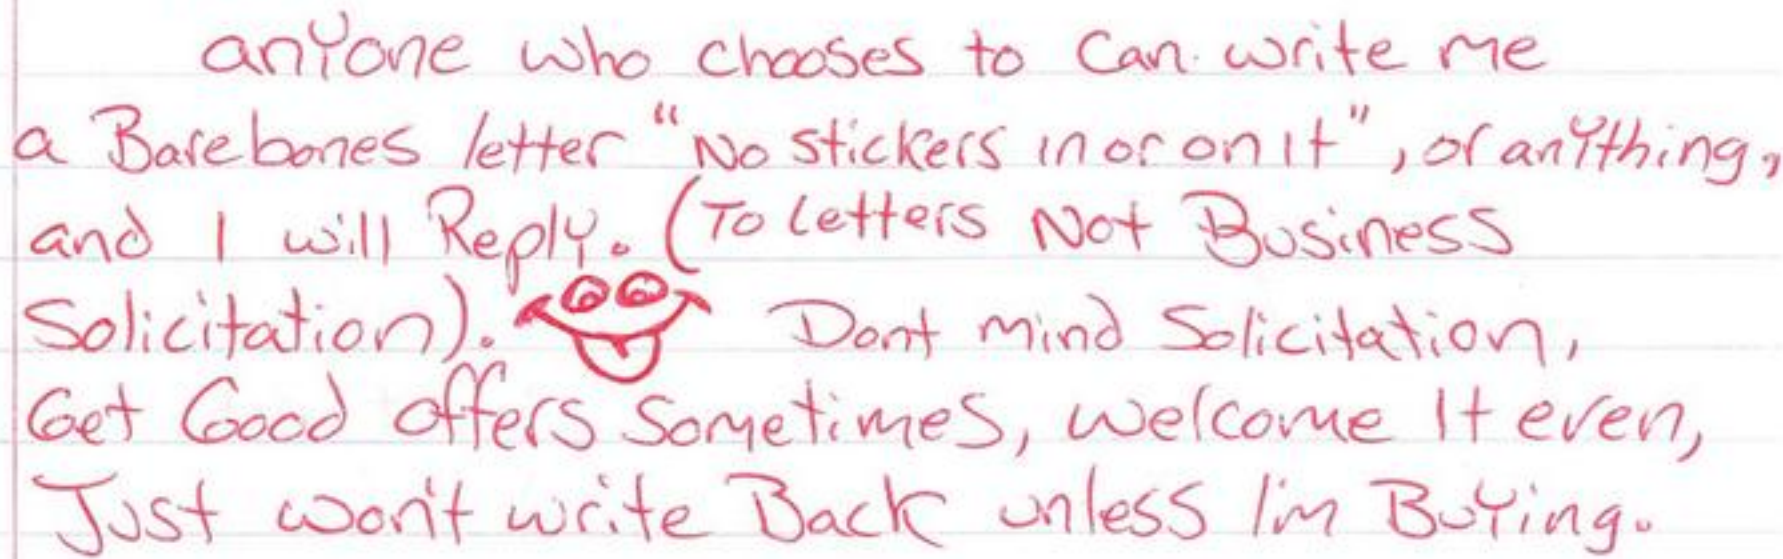 anYone who chooses to Can. write me
a Barebones letter "No stickers in or on It", or anYthing,
and I will Reply. (To Letters Not Business
Solicitation). Dont mind Solicitation,
Get Good offers Sometimes, welcome It even,
Just won't write Back unless I'm BuYing.